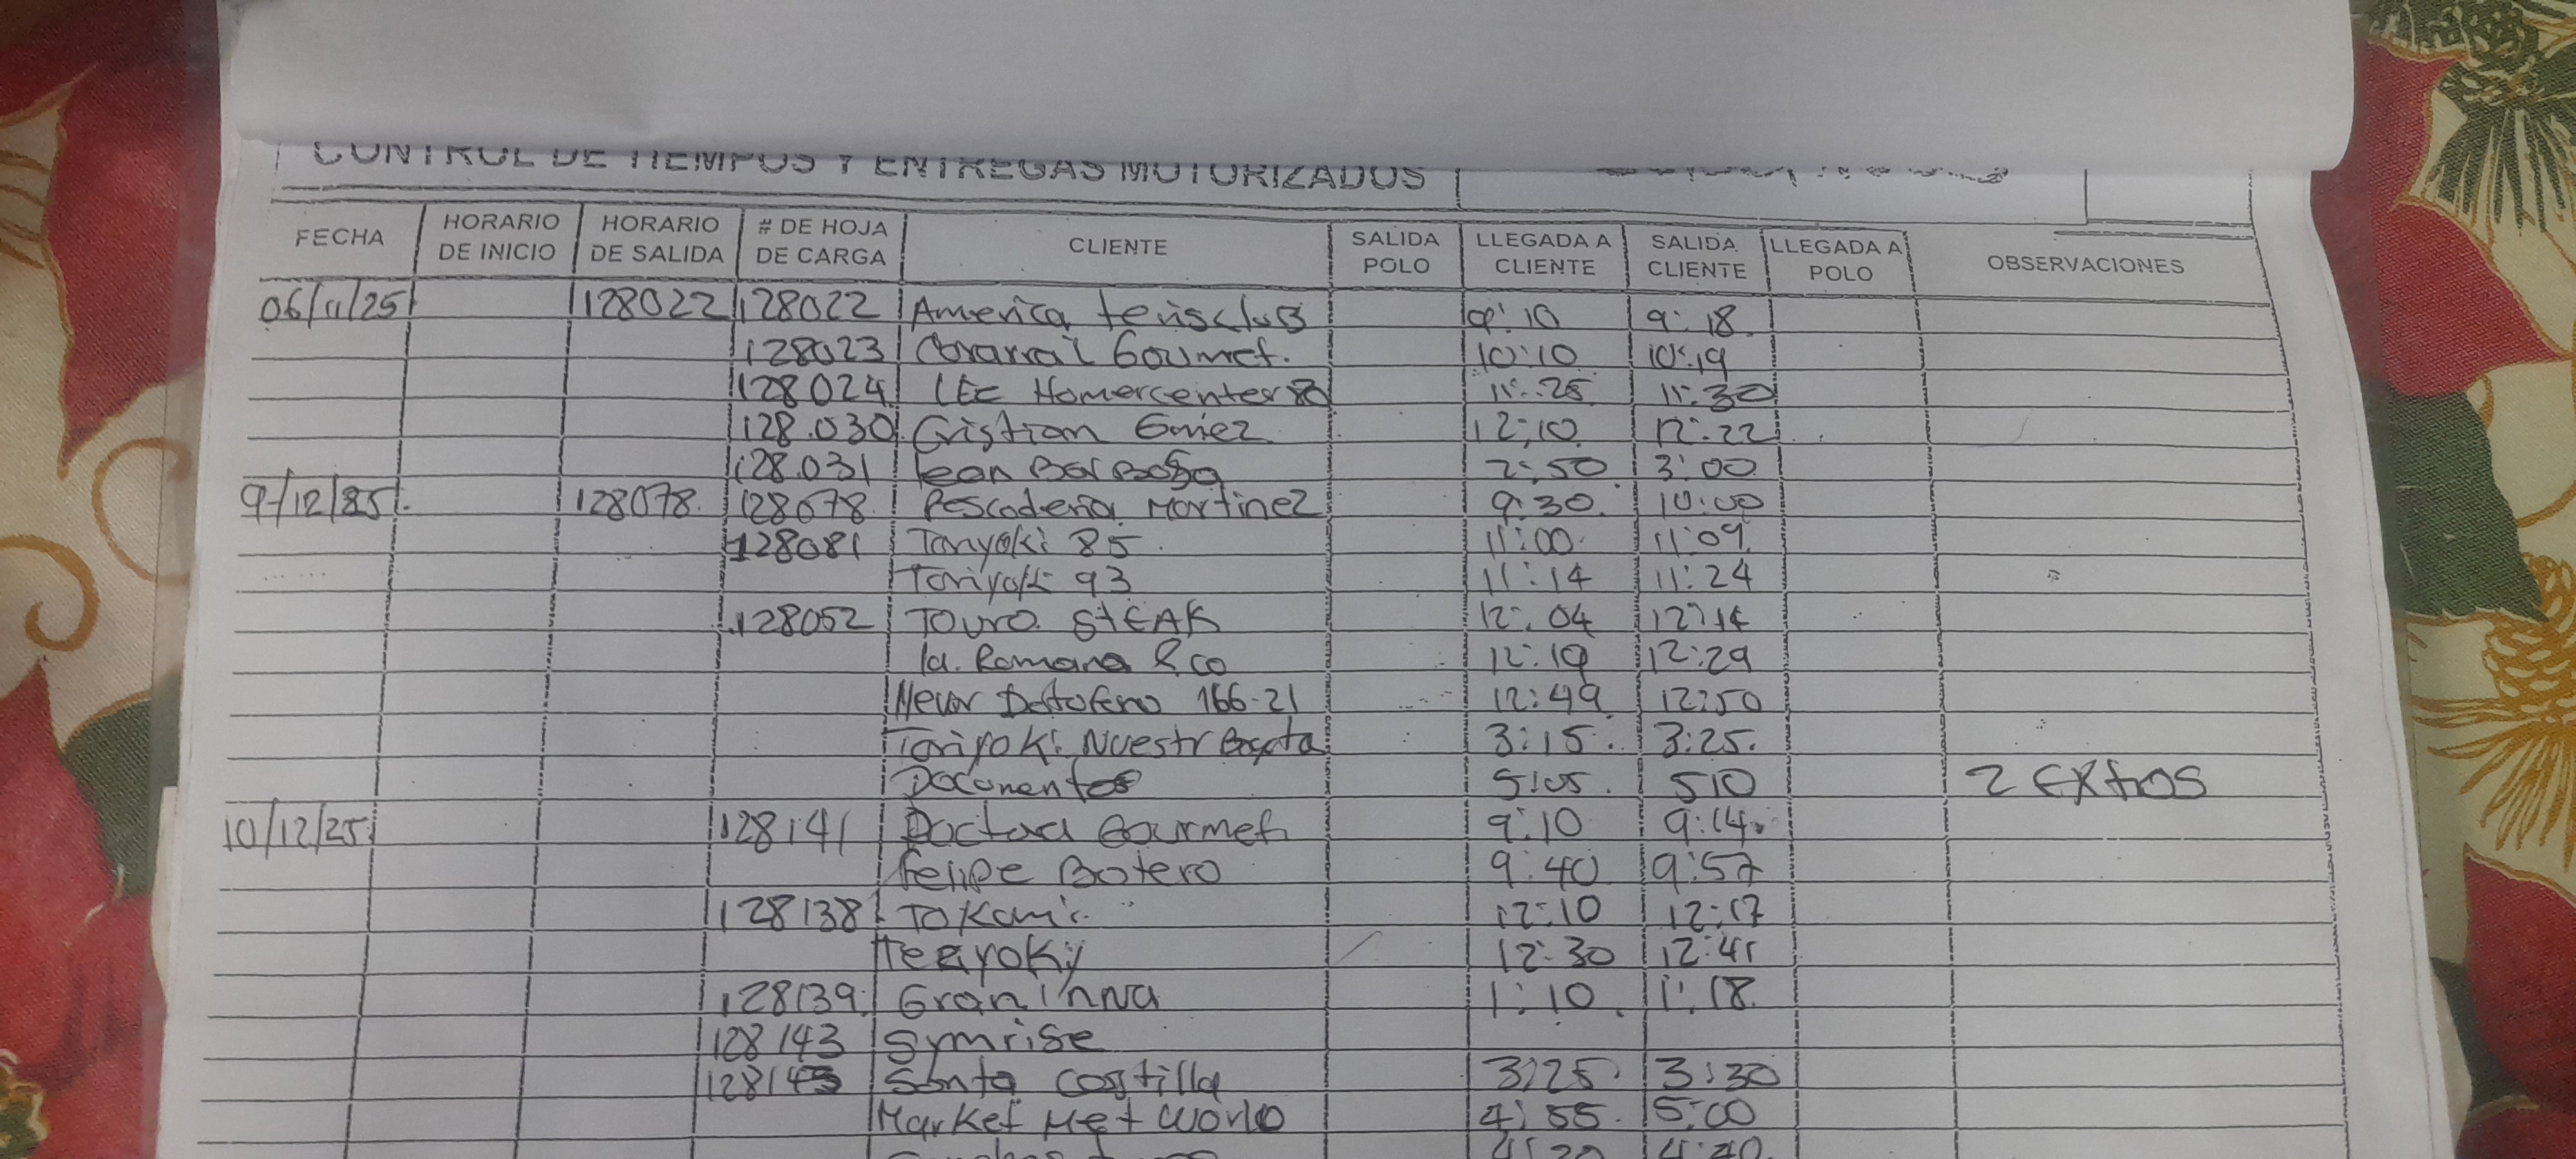 CONTROL DE TIEMPOS Y ENTREGAS MOTORIZADOS
FECHA HORARIO DE INICIO HORARIO DE SALIDA # DE HOJA DE CARGA CLIENTE SALIDA POLO LLEGADA A CLIENTE SALIDA CLIENTE LLEGADA A POLO OBSERVACIONES
06/11/25 128022 128022 America teniscluB 9:10 9:18
128023 Gourmet. 10:10 10:19
128024 Homercenter 80 11:25 11:30
128.030 Cristian 12:10 12:22
128.031 lean 2:50 3:00
9/12/25 128078. 128078. Pescaderia Martinez 9:30 10:00
128081 Toriyaki 85 11:00 11:09
Toriyaki 93 11:14 11:24
128052 TOURO StEAK 12:04 12:14
la. Romana &co 12:19 12:29
166-21 12:49 12:50
Toriyoki Nuestr Bogota 3:15. 3:25.
Documentos 5:05. 510 2 EXtras
10/12/25 128141 Doctoa Gourmet 9:10 9:14.
felipe Botero 9:40 9:57
128138 TOKami 12:10 12:17
TeRyoky 12:30 12:41
128139 Gran inna 1:10 1:18
128143 Symrise
128143 Santa Costilla 3:25 3:30
Market Met World 4:55. 5:00